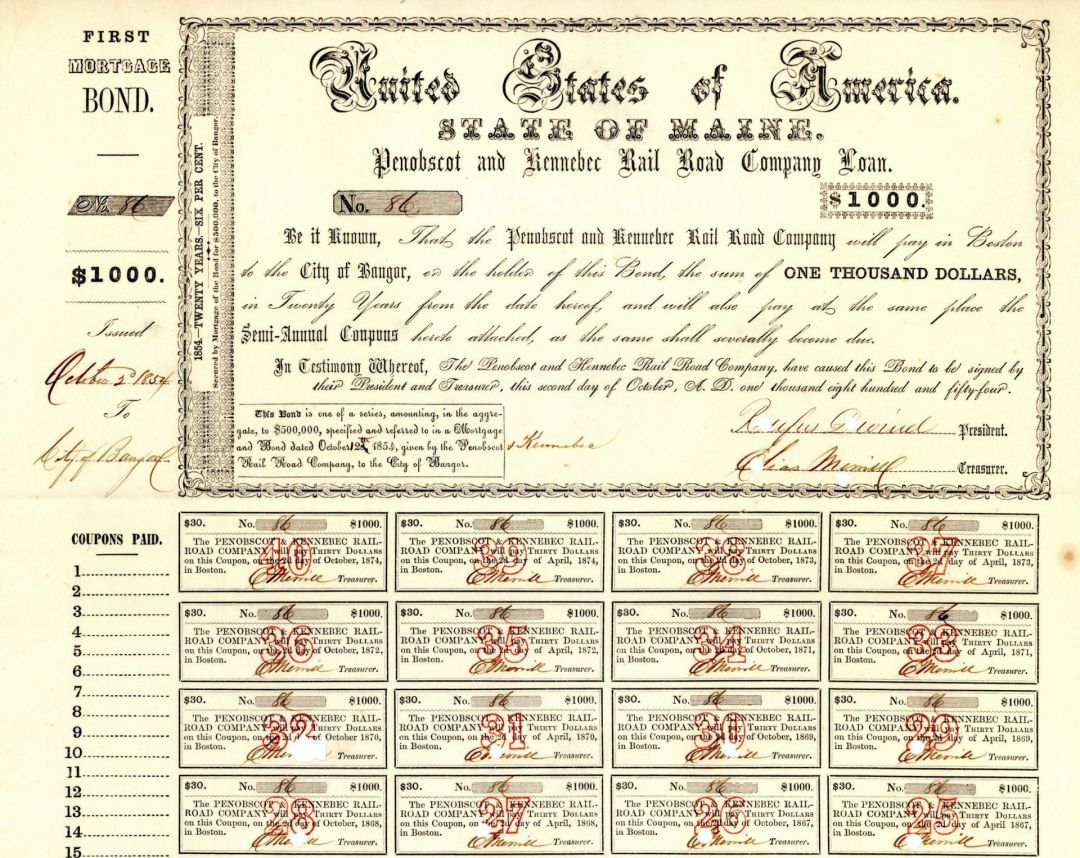 FIRST
MORTGAGE
BOND.
No. 86
$1000.
Issued
October 2d 1854
To
City of Bangor
1854.—TWENTY YEARS.—SIX PER CENT.
Secured by Mortgage of the Road for $500,000, to the City of Bangor.
United States of America.
STATE OF MAINE.
Penobscot and Kennebec Rail Road Company Loan.
No. 86. $1000.
Be it Known, That the Penobscot and Kennebec Rail Road Company will pay in Boston
to the City of Bangor, or the holder of this Bond, the sum of ONE THOUSAND DOLLARS,
in Twenty Years from the date hereof, and will also pay at the same place the
Semi-Annual Coupons hereto attached, as the same shall severally become due.
In Testimony Whereof, The Penobscot and Kennebec Rail Road Company, have caused this Bond to be signed by
their President and Treasurer, this second day of October, A. D. one thousand eight hundred and fifty-four.
This Bond is one of a series, amounting, in the aggre-
gate, to $500,000, specified and referred to in a Mortgage
and Bond dated October 1854, given by the Penobscot & Kennebec
Rail Road Company, to the City of Bangor.
Rufus Dwinel President.
Elias Merrill Treasurer.
COUPONS PAID.
1
2
3
4
5
6
7
8
9
10
11
12
13
14
15
$30. No. 86 $1000.
The PENOBSCOT & KENNEBEC RAIL-
ROAD COMPANY will pay THIRTY DOLLARS
on this Coupon, on the 2d day of October, 1874,
in Boston.
E Merrill Treasurer.
40
$30. No. 86 $1000.
The PENOBSCOT & KENNEBEC RAIL-
ROAD COMPANY will pay THIRTY DOLLARS
on this Coupon, on the 2d day of April, 1874,
in Boston.
E Merrill Treasurer.
39
$30. No. 86 $1000.
The PENOBSCOT & KENNEBEC RAIL-
ROAD COMPANY will pay THIRTY DOLLARS
on this Coupon, on the 2d day of October, 1873,
in Boston.
E Merrill Treasurer.
38
$30. No. 86 $1000.
The PENOBSCOT & KENNEBEC RAIL-
ROAD COMPANY will pay THIRTY DOLLARS
on this Coupon, on the 2d day of April, 1873,
in Boston.
E Merrill Treasurer.
37
$30. No. 86 $1000.
The PENOBSCOT & KENNEBEC RAIL-
ROAD COMPANY will pay THIRTY DOLLARS
on this Coupon, on the 2d day of October, 1872,
in Boston.
E Merrill Treasurer.
36
$30. No. 86 $1000.
The PENOBSCOT & KENNEBEC RAIL-
ROAD COMPANY will pay THIRTY DOLLARS
on this Coupon, on the 2d day of April, 1872,
in Boston.
E Merrill Treasurer.
35
$30. No. 86 $1000.
The PENOBSCOT & KENNEBEC RAIL-
ROAD COMPANY will pay THIRTY DOLLARS
on this Coupon, on the 2d day of October, 1871,
in Boston.
E Merrill Treasurer.
34
$30. No. 86 $1000.
The PENOBSCOT & KENNEBEC RAIL-
ROAD COMPANY will pay THIRTY DOLLARS
on this Coupon, on the 2d day of April, 1871,
in Boston.
E Merrill Treasurer.
33
$30. No. 86 $1000.
The PENOBSCOT & KENNEBEC RAIL-
ROAD COMPANY will pay THIRTY DOLLARS
on this Coupon, on the 2d day of October, 1870,
in Boston.
Treasurer.
32
$30. No. 86 $1000.
The PENOBSCOT & KENNEBEC RAIL-
ROAD COMPANY will pay THIRTY DOLLARS
on this Coupon, on the 2d day of April, 1870,
in Boston.
E Merrill Treasurer.
31
$30. No. 86 $1000.
The PENOBSCOT & KENNEBEC RAIL-
ROAD COMPANY will pay THIRTY DOLLARS
on this Coupon, on the 2d day of October, 1869,
in Boston.
E Merrill Treasurer.
30
$30. No. 86 $1000.
The PENOBSCOT & KENNEBEC RAIL-
ROAD COMPANY will pay THIRTY DOLLARS
on this Coupon, on the 2d day of April, 1869,
in Boston.
E Merrill Treasurer.
29
$30. No. 86 $1000.
The PENOBSCOT & KENNEBEC RAIL-
ROAD COMPANY will pay THIRTY DOLLARS
on this Coupon, on the 2d day of October, 1868,
in Boston.
E Merrill Treasurer.
28
$30. No. 86 $1000.
The PENOBSCOT & KENNEBEC RAIL-
ROAD COMPANY will pay THIRTY DOLLARS
on this Coupon, on the 2d day of April, 1868,
in Boston.
E Merrill Treasurer.
27
$30. No. 86 $1000.
The PENOBSCOT & KENNEBEC RAIL-
ROAD COMPANY will pay THIRTY DOLLARS
on this Coupon, on the 2d day of October, 1867,
in Boston.
E Merrill Treasurer.
26
$30. No. 86 $1000.
The PENOBSCOT & KENNEBEC RAIL-
ROAD COMPANY will pay THIRTY DOLLARS
on this Coupon, on the 2d day of April, 1867,
in Boston.
E Merrill Treasurer.
25